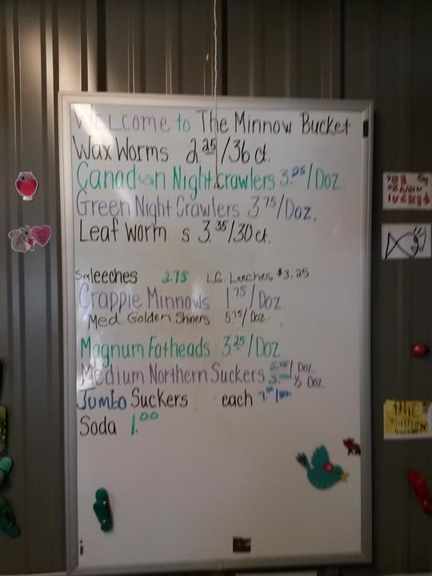 Welcome to The Minnow Bucket
Wax Worms 2.25/36 ct.
Canadian Night Crawlers 3.25/Doz.
Green Night Crawlers 3.75/Doz.
Leaf Worm s 3.35/30 ct.
Sm leeches 2.75 LG. Leeches $3.25
Crappie Minnows 1.75/Doz.
Med. Golden Shiners 5.75/Doz.
Magnum Fatheads 3.25/Doz.
Medium Northern Suckers /Doz.
½ Doz.
Jumbo Suckers each
Soda 1.00